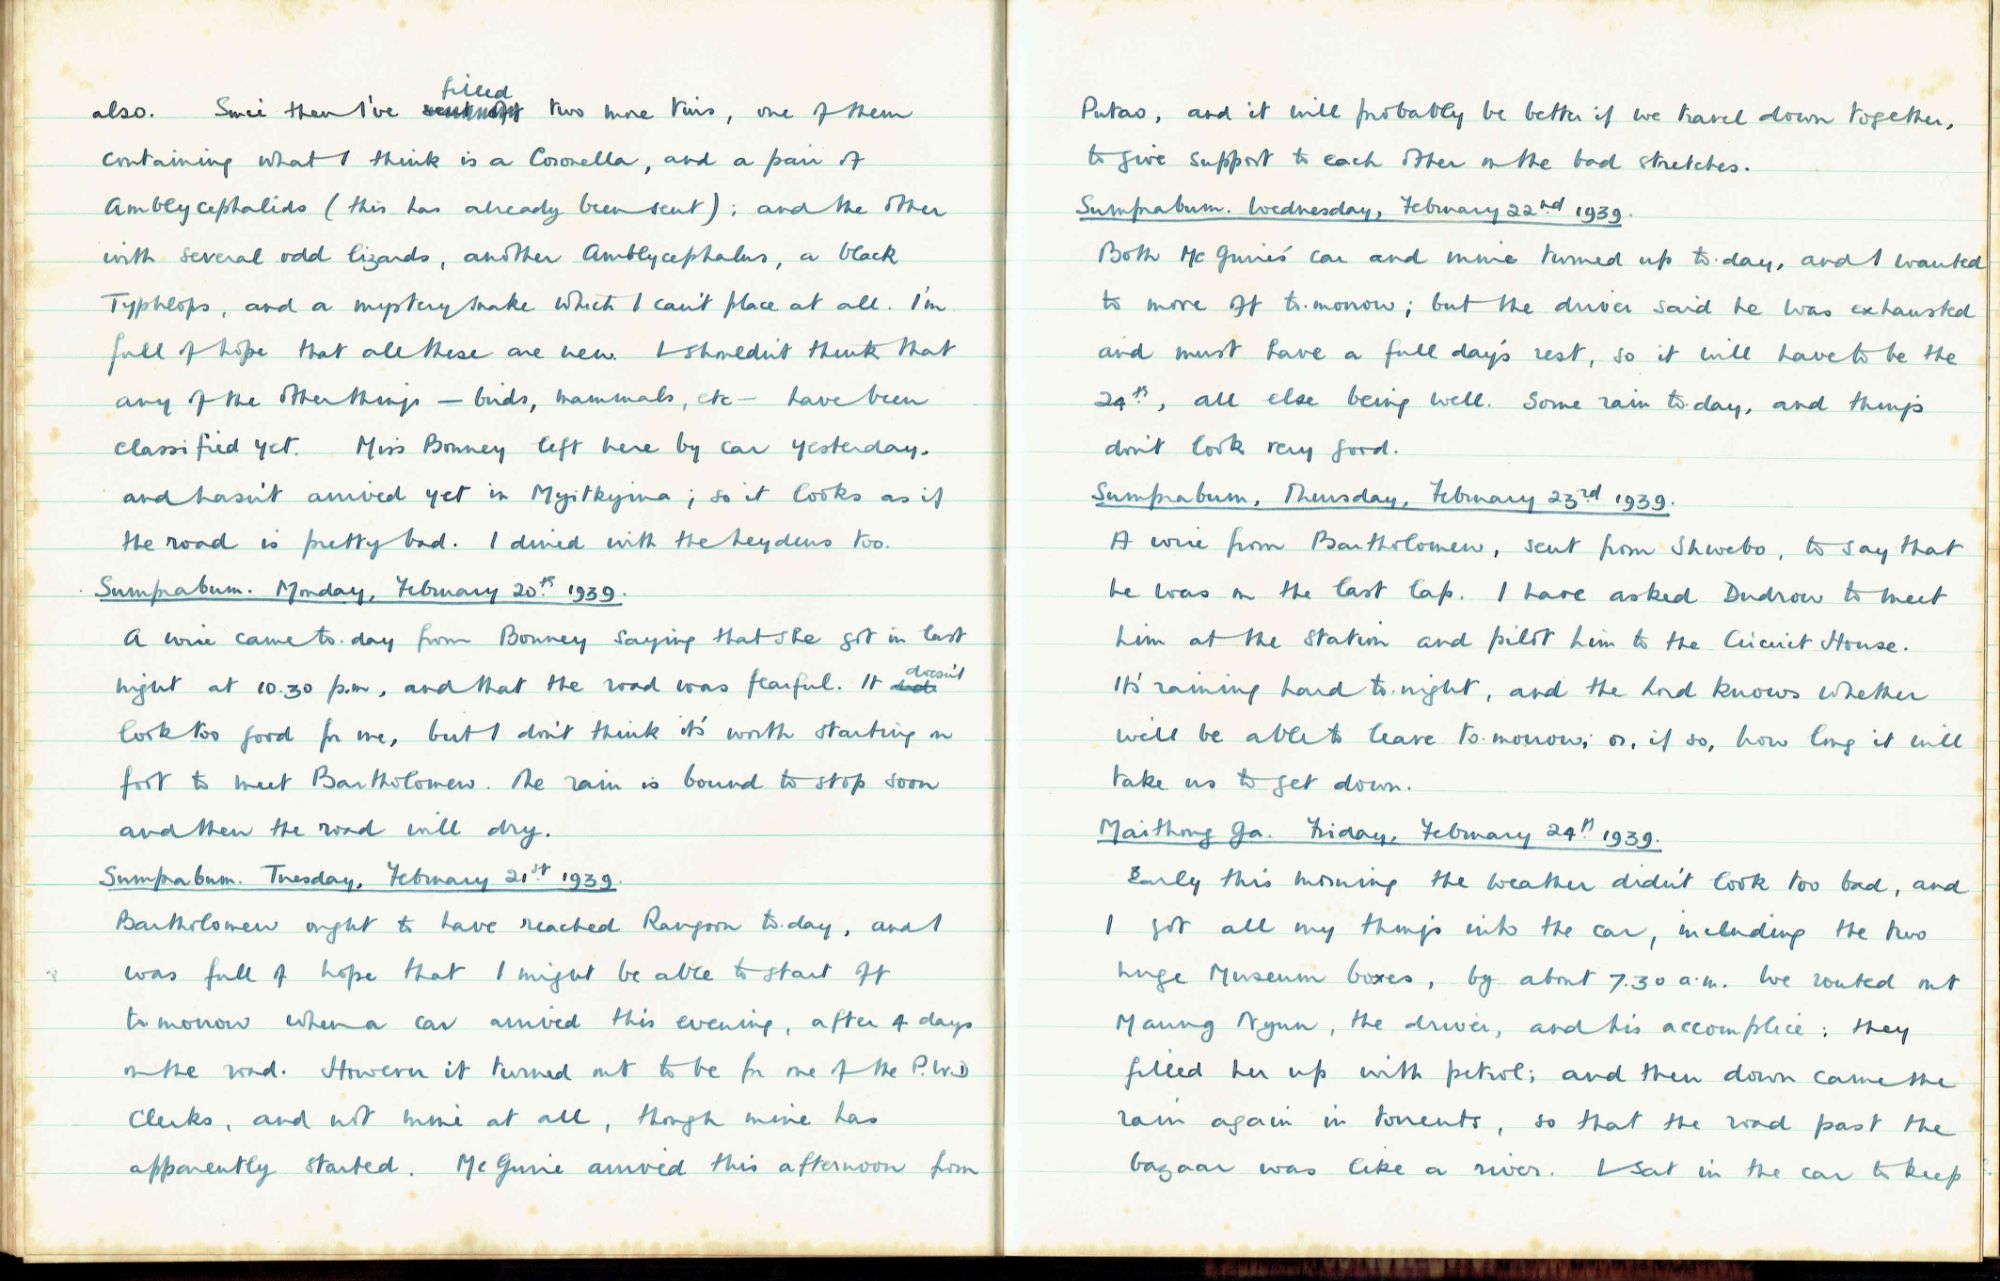 also. Since then I've sent off filled two more tins, one of them
containing what I think is a Coronella, and a pair of
Amblycephalids (this has already been sent); and the other
with several odd lizards, another Amblycephalus, a black
Typhlops, and a mystery snake which I can't place at all. I'm
full of hope that all these are new. I shouldn't think that
any of the other things – birds, mammals, etc – have been
classified yet. Miss Bonney left here by car yesterday,
and hasn't arrived yet in Myitkyina; so it looks as if
the road is pretty bad. I dined with the Leydens too.
Sumprabum. Monday, February 20th 1939.
A wire came to-day from Bonney saying that she got in last
night at 10.30 p.m, and that the road was fearful. It doesn't
look too good for me, but I don't think it's worth starting on
foot to meet Bartholomew. The rain is bound to stop soon
and then the road will dry.
Sumprabum. Tuesday, February 21st 1939.
Bartholomew ought to have reached Rangoon to-day, and I
was full of hope that I might be able to start off
to-morrow when a car arrived this evening, after 4 days
on the road. However it turned out to be for one of the P.W.D
Clerks, and not mine at all, though mine has
apparently started. McGuire arrived this afternoon from
Putao, and it will probably be better if we travel down together,
to give support to each other on the bad stretches.
Sumprabum. Wednesday, February 22nd 1939.
Both McGuire's car and mine turned up to-day, and I wanted
to move off to-morrow; but the driver said he was exhausted
and must have a full day's rest, so it will have to be the
24th, all else being well. Some rain to-day, and things
don't look very good.
Sumprabum, Thursday, February 23rd 1939.
A wire from Bartholomew, sent from Shwebo, to say that
he was on the last lap. I have asked Dudrow to meet
him at the station and pilot him to the Circuit House.
It's raining hard to-night, and the Lord knows whether
we'll be able to leave to-morrow; or, if so, how long it will
take us to get down.
Maithong Ga. Friday, February 24th 1939.
Early this morning the weather didn't look too bad, and
I got all my things into the car, including the two
huge Museum boxes, by about 7.30 a.m. We routed out
Maung Nyun, the driver, and his accomplice; they
filled her up with petrol; and then down came the
rain again in torrents, so that the road past the
bazaar was like a river. I sat in the car to keep